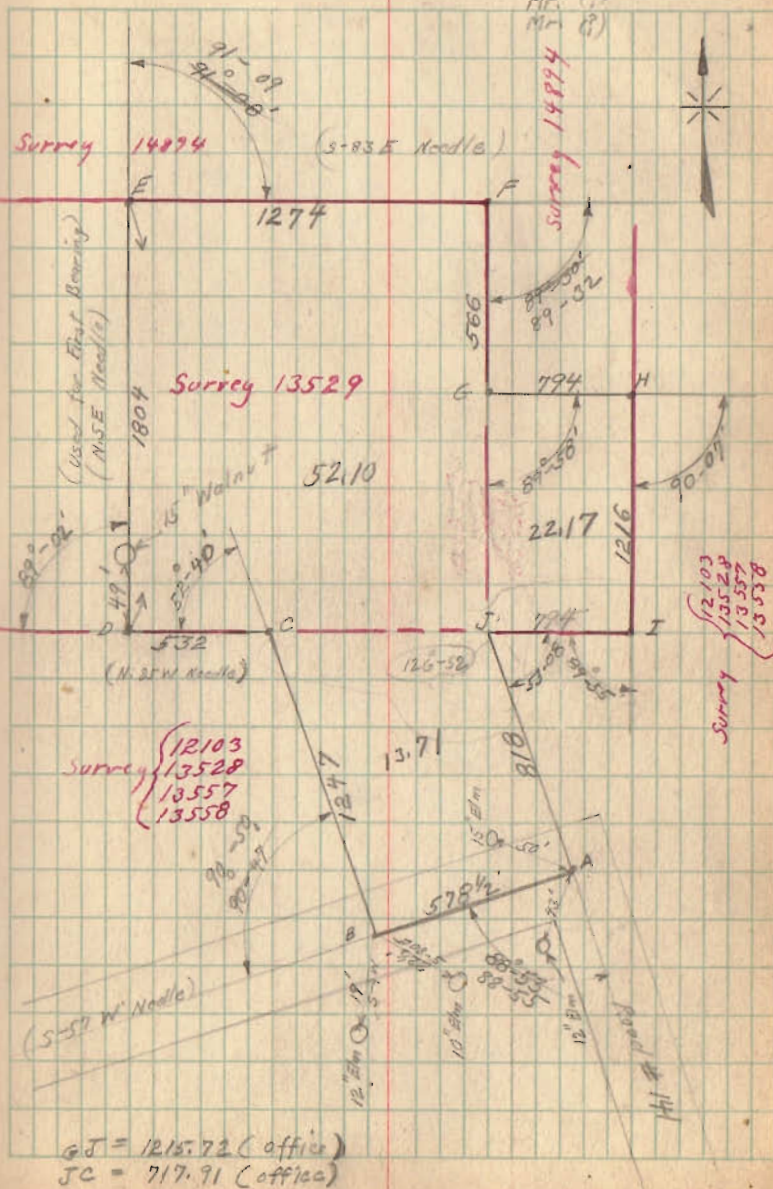 Mr. (?)
Mr. (?)
91-09
91°-08'
Survey 14894
(S-83E Needle)
Survey 14894
E
F
1274
(Used for First Bearing)
(N.5E Needle)
1804
566
89°-30'
89-32
Survey 13529
G
794
H
15" Walnut
52.10
89°-58'
90-07'
22.17
1216
89°-02'
49'
52°-40'
D
532
C
J
794
I
(N.85W Needle)
126-52
53-08
89°-55'
Survey {12103
13528
13557
13558
Survey {12103
13528
13557
13558
13.71
818
1247
90°-50'
90-47
15" Elm
50'
A
578½
B
93'
88°-53'
88-55
19'
12" Elm
10" Elm
12" Elm
(S-57 W Needle)
Road # 141
GJ = 1215.72 (office)
JC = 717.91 (office)